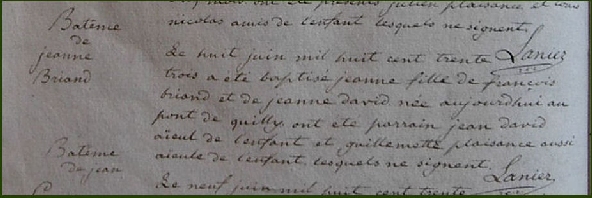 nicolas amis de l'enfant lesquels ne signent.
Batême
de
jeanne
Briand
Le huit juin mil huit cent trente
Lanier
trois a été baptisé jeanne fille de françois
briand et de jeanne david née aujourdhui au
pont de quilly, ont ete parrain jean david
aieul de l'enfant et guillemette plaisance aussi
aieule de l'enfant, lesquels ne signent.
Lanier
Batême
de jean
Le neuf juin mil huit cent trente